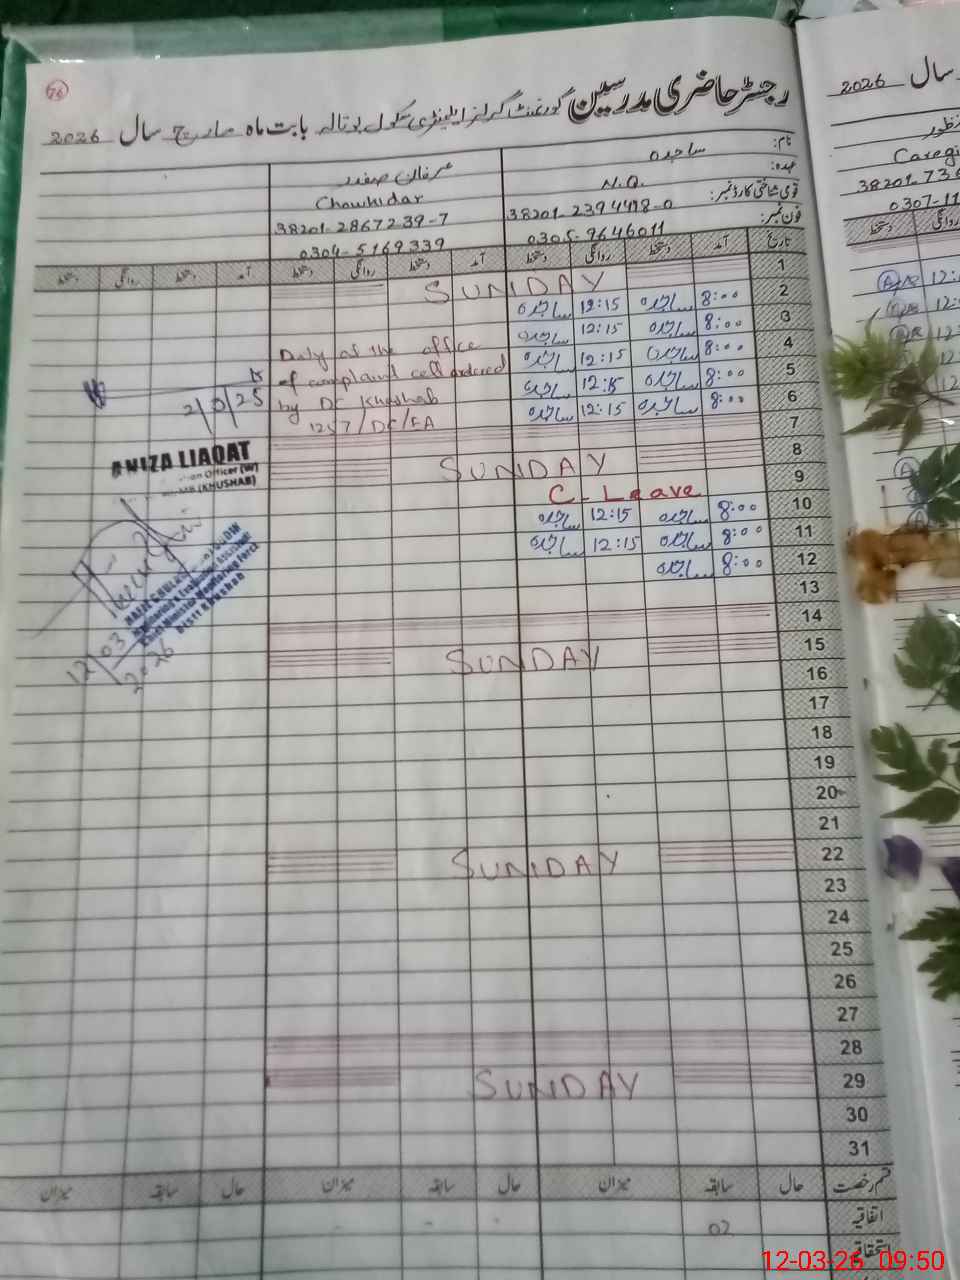 76
رجسٹر حاضری مدرسین گورنمنٹ گرلز ایلیمنٹری سکول بوتالہ بابت ماہ مارچ سال 2026
نام: ساجدہ عرفان صفدر
عہدہ: N.Q. Chowkidar
قومی شناختی کارڈ نمبر: 38201-2394498-0 38201-2867239-7
فون نمبر: 0305-9646011 0304-5169339
تاریخ آمد دستخط روانگی دستخط آمد دستخط روانگی دستخط آمد دستخط روانگی دستخط
1 SUNDAY
2 8:00 ساجدہ 12:15 ساجدہ
3 8:00 ساجدہ 12:15 ساجدہ
4 8:00 ساجدہ 12:15 ساجدہ
5 8:00 ساجدہ 12:15 ساجدہ
6 8:00 ساجدہ 12:15 ساجدہ
Duty at the office
of complaint cell ordered
by DC Khushab
1257/DC/EA
7
8 SUNDAY
9 C-Leave
10 8:00 ساجدہ 12:15 ساجدہ
11 8:00 ساجدہ 12:15 ساجدہ
12 8:00 ساجدہ
13
14
15 SUNDAY
16
17
18
19
20
21
22 SUNDAY
23
24
25
26
27
28
29 SUNDAY
30
31
ANIZA LIAQAT
Officer (W)
(KHUSHAB)
Monitoring & Evaluation Assistant
Chief Minister Monitoring Force
Distt Khushab
12/03
2026
قسم رخصت حال سابقہ میزان حال سابقہ میزان حال سابقہ میزان
اتفاقیہ 02
استحقاقی
سال 2026
منظور
38201-736
0307-11
روانگی دستخط
12-03-26 09:50